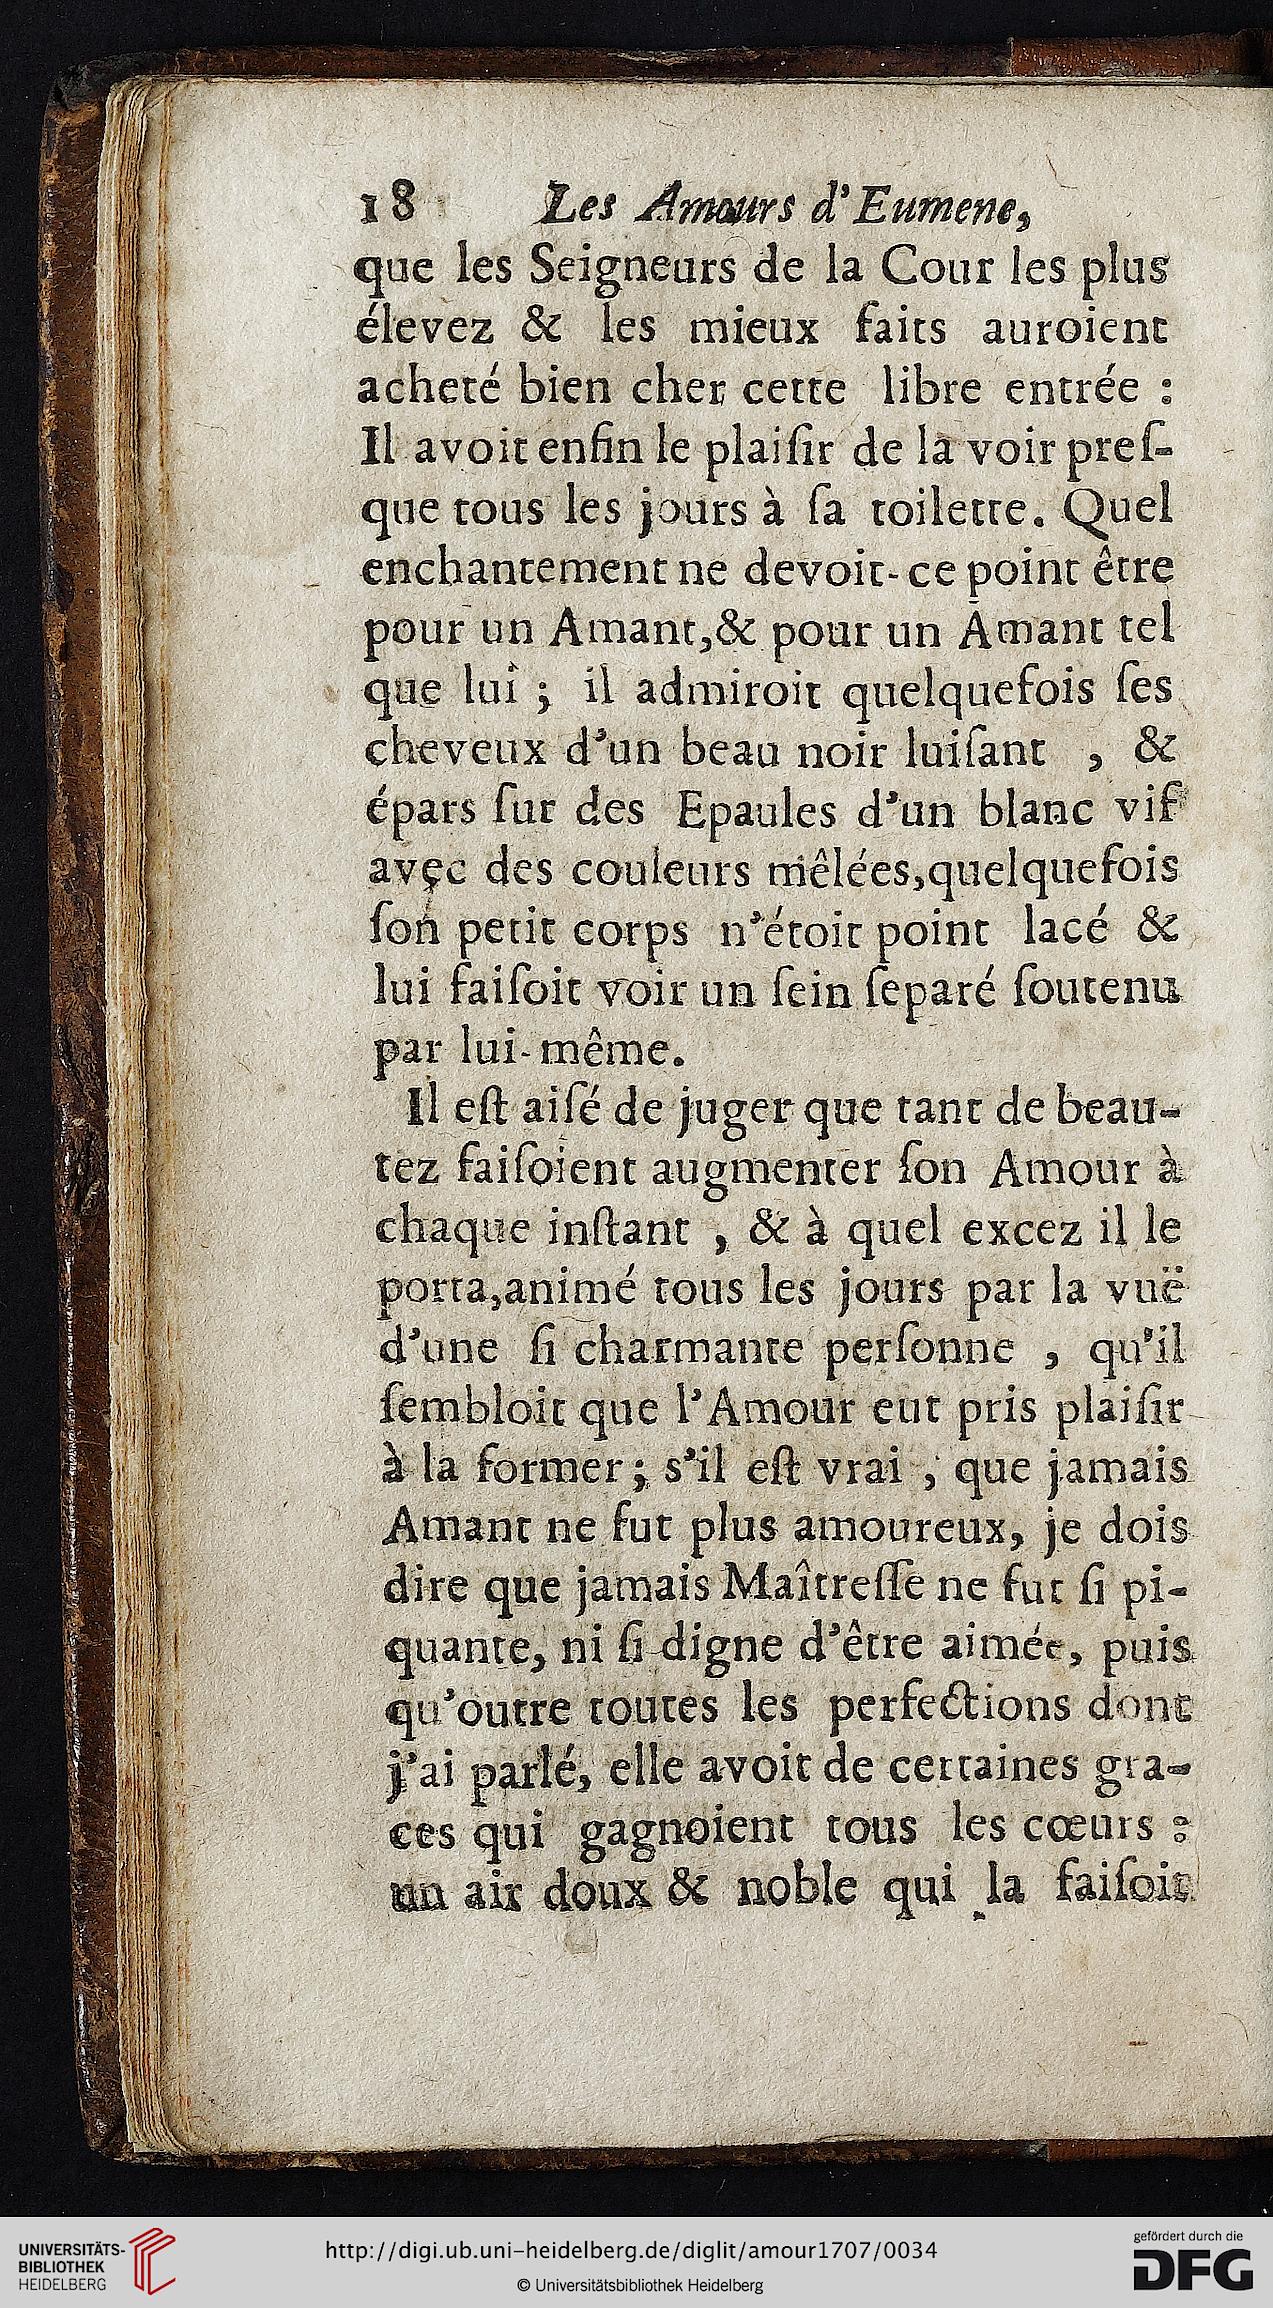 18 Les Amours d'Eumene,
que les Seigneurs de la Cour les plus
élevez & les mieux faits auroient
acheté bien cher cette libre entrée :
Il avoit enfin le plaiſir de la voir preſ-
que tous les jours à ſa toilette. Quel
enchantement ne devoit-ce point être
pour un Amant,& pour un Amant tel
que lui ; il admiroit quelquefois ſes
cheveux d'un beau noir luiſant , &
épars ſur des Epaules d'un blanc vif
avec des couleurs mêlées,quelquefois
ſon petit corps n'étoit point lacé &
lui faiſoit voir un ſein ſeparé ſoutenu
par lui-même.
Il eſt aiſé de juger que tant de beau-
tez faiſoient augmenter ſon Amour à
chaque inſtant , & à quel excez il le
porta,animé tous les jours par la vuë
d'une ſi charmante perſonne , qu'il
ſembloit que l'Amour eut pris plaiſir
à la former ; s'il eſt vrai , que jamais
Amant ne fut plus amoureux, je dois
dire que jamais Maîtreſſe ne fut ſi pi-
quante, ni ſi digne d'être aimée, puis
qu'outre toutes les perfections dont
j'ai parlé, elle avoit de certaines gra-
ces qui gagnoient tous les cœurs :
un air doux & noble qui la faiſoit
UNIVERSITÄTS-
BIBLIOTHEK
HEIDELBERG
http://digi.ub.uni-heidelberg.de/diglit/amour1707/0034
© Universitätsbibliothek Heidelberg
gefördert durch die
DFG